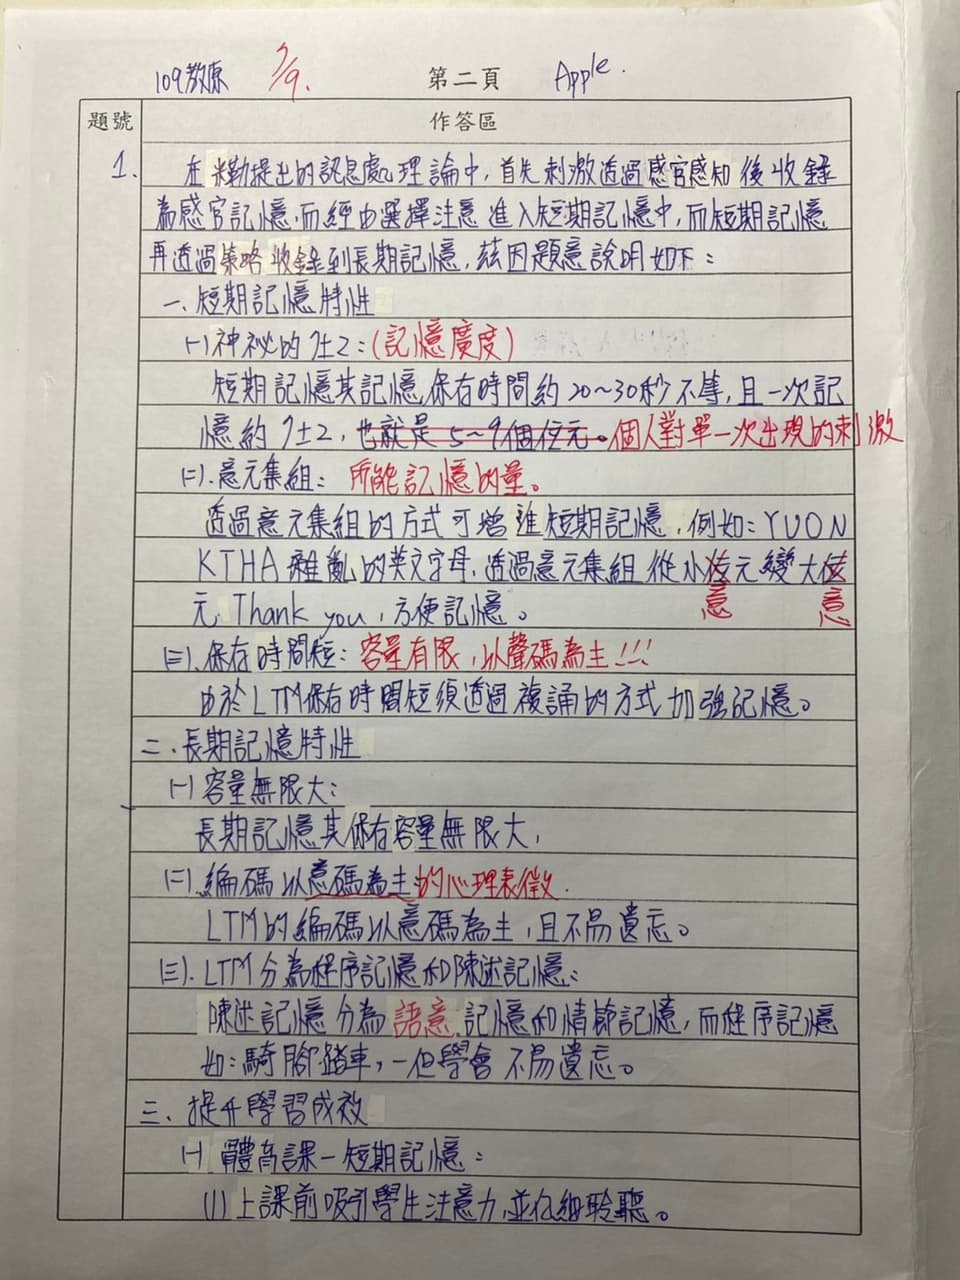 109教原 7/9. 第二頁 Apple.
題號 作答區
1. 在米勒提出的訊息處理論中,首先刺激透過感官感知後收錄
為感官記憶,而經由選擇注意進入短期記憶中,而短期記憶
再透過策略收錄到長期記憶,茲因題意說明如下:
一、短期記憶特性
(一)神祕的7±2:(記憶廣度)
短期記憶其記憶保存時間約20~30秒不等,且一次記
憶約7±2,也就是5~9個位元。個人對單一次出現的刺激
(二).意元集組: 所能記憶的量。
透過意元集組的方式可增進短期記憶,例如:YUON
KTHA雜亂的英文字母,透過意元集組從小位元變大位
意 意
元 Thank you,方便記憶。
(三).保存時間短:容量有限,以聲碼為主!!!
由於LTM保存時間短須透過複誦的方式加強記憶。
二.長期記憶特性
(一)容量無限大:
長期記憶其保存容量無限大,
(二).編碼以意碼為主的心理表徵.
LTM的編碼以意碼為主,且不易遺忘。
(三).LTM分為程序記憶和陳述記憶:
陳述記憶分為語意記憶和情節記憶,而程序記憶
如:騎腳踏車,一但學會不易遺忘。
三、提升學習成效
(一)體育課-短期記憶:
(1)上課前吸引學生注意力,並仔細聆聽。